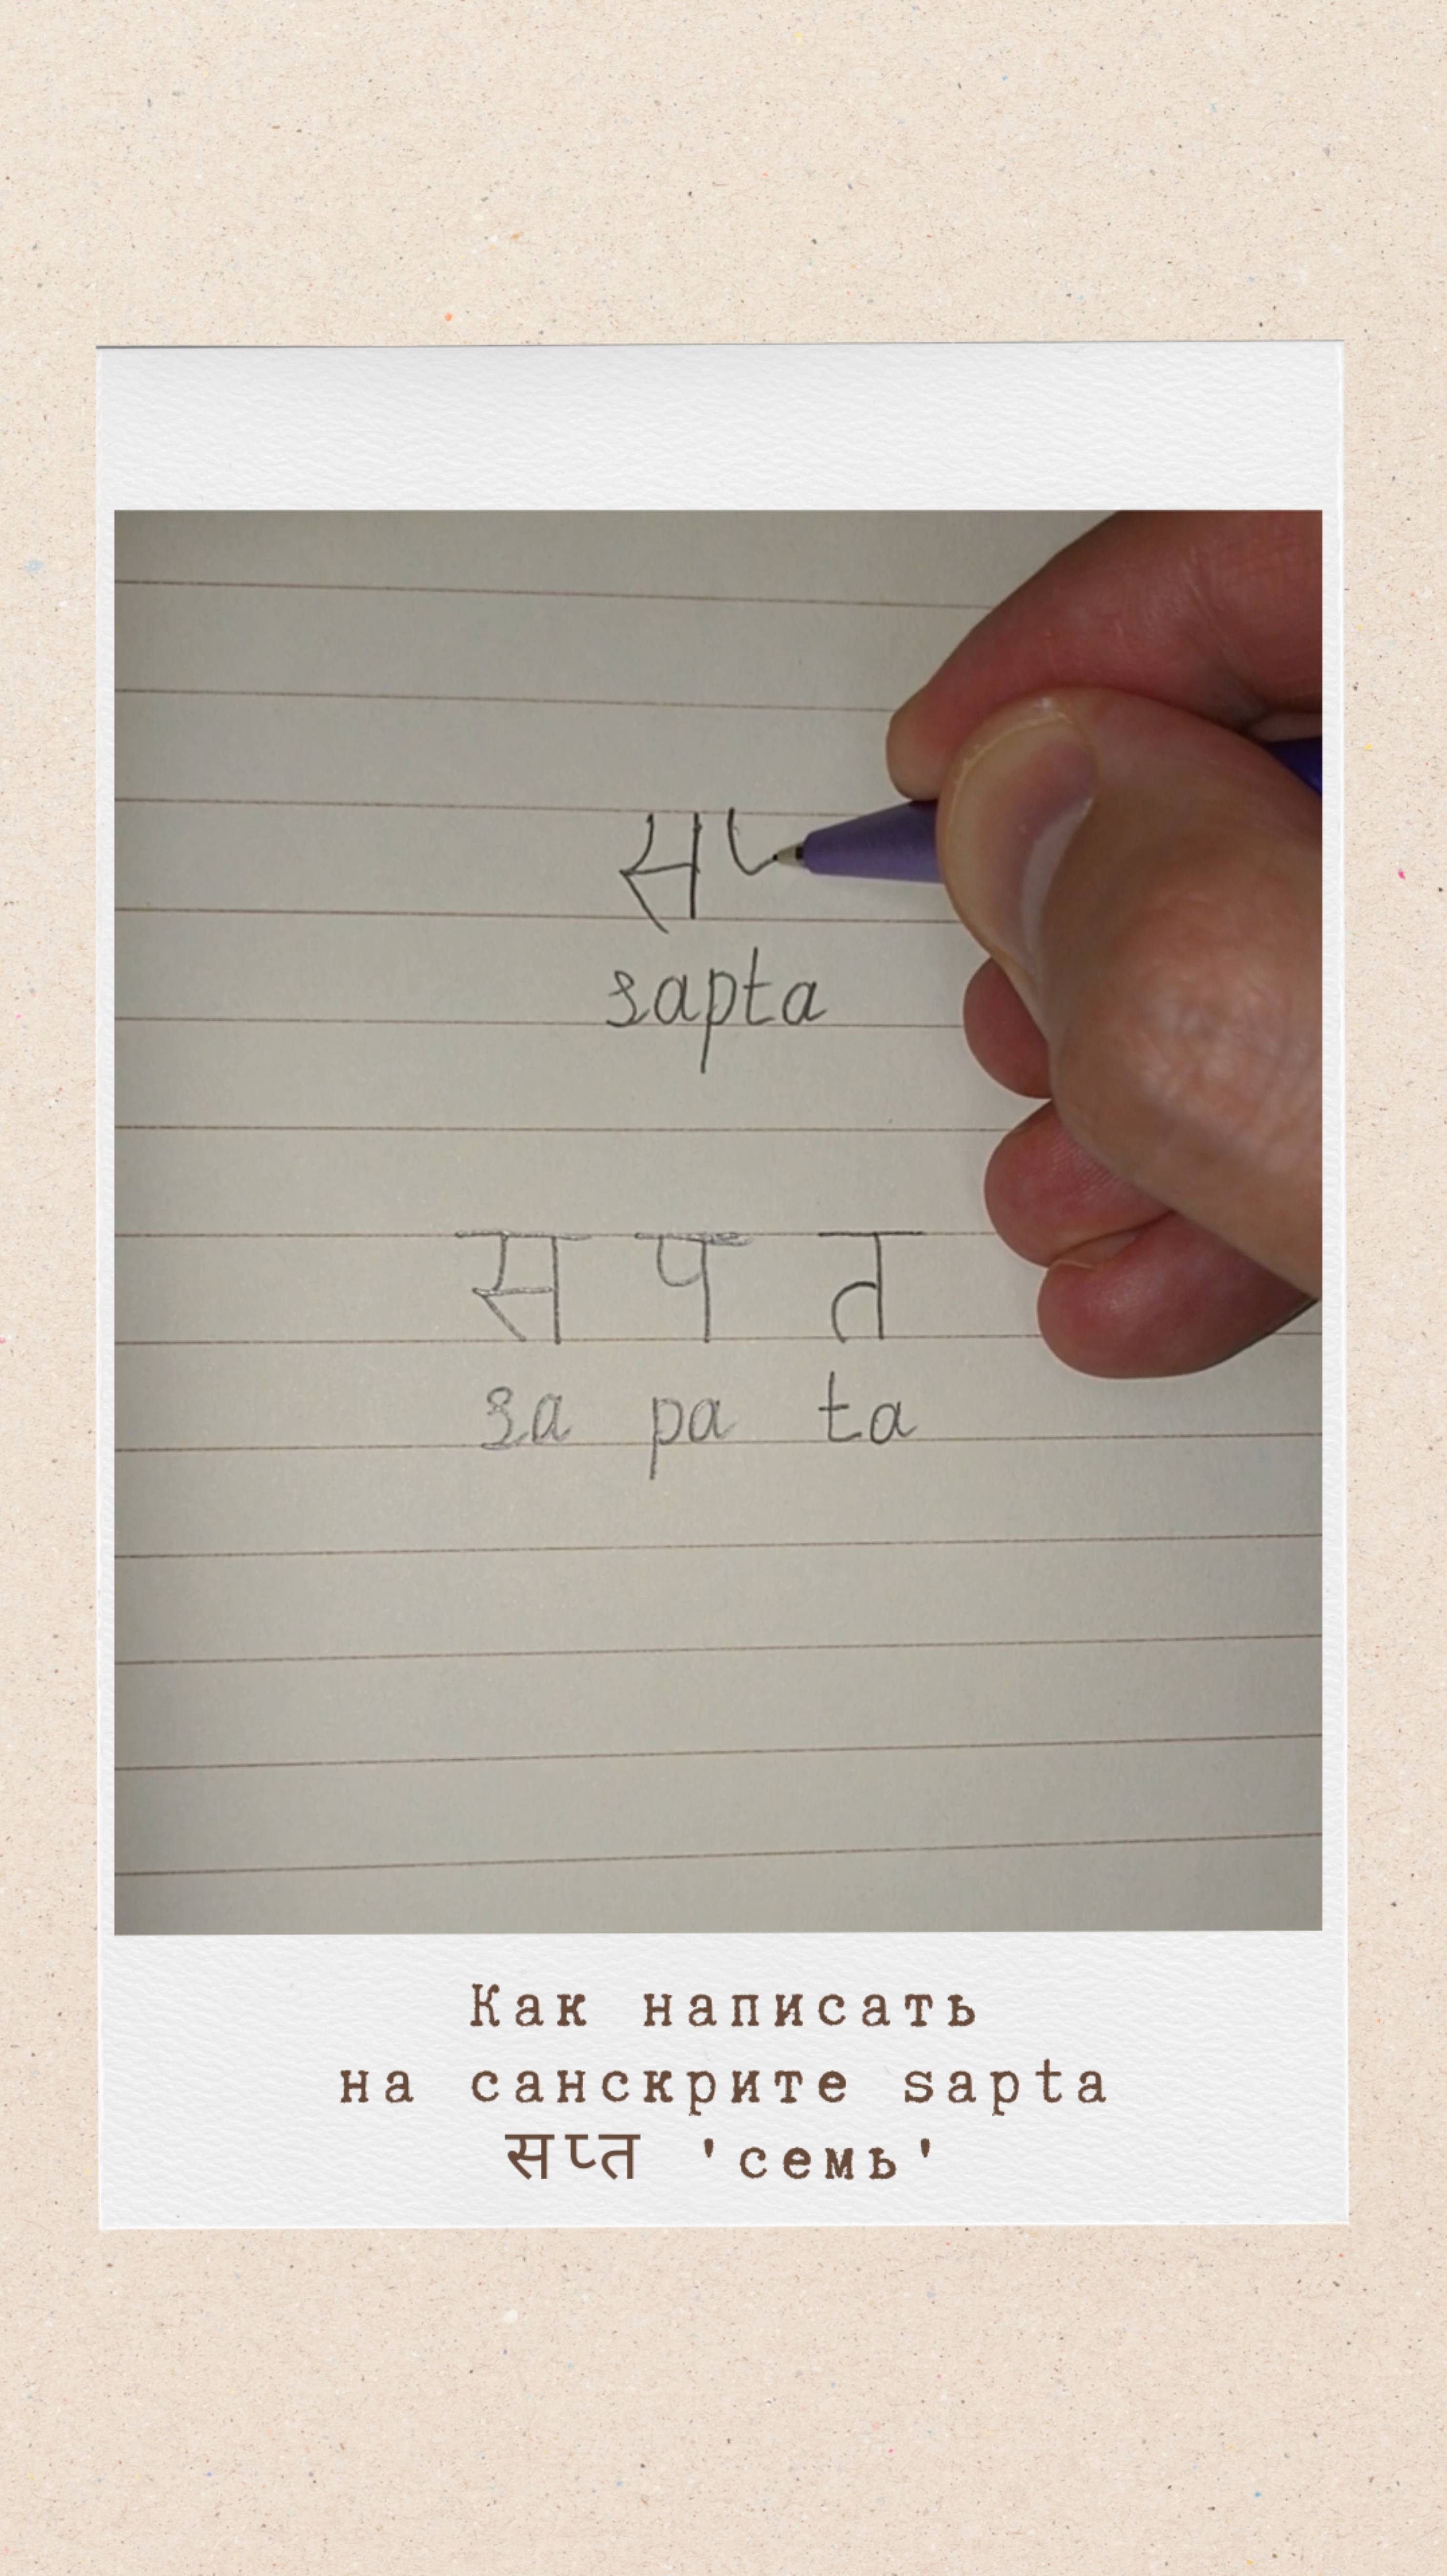 स
sapta
स प त
sa pa ta
Как написать
на санскрите sapta
सप्त 'семь'